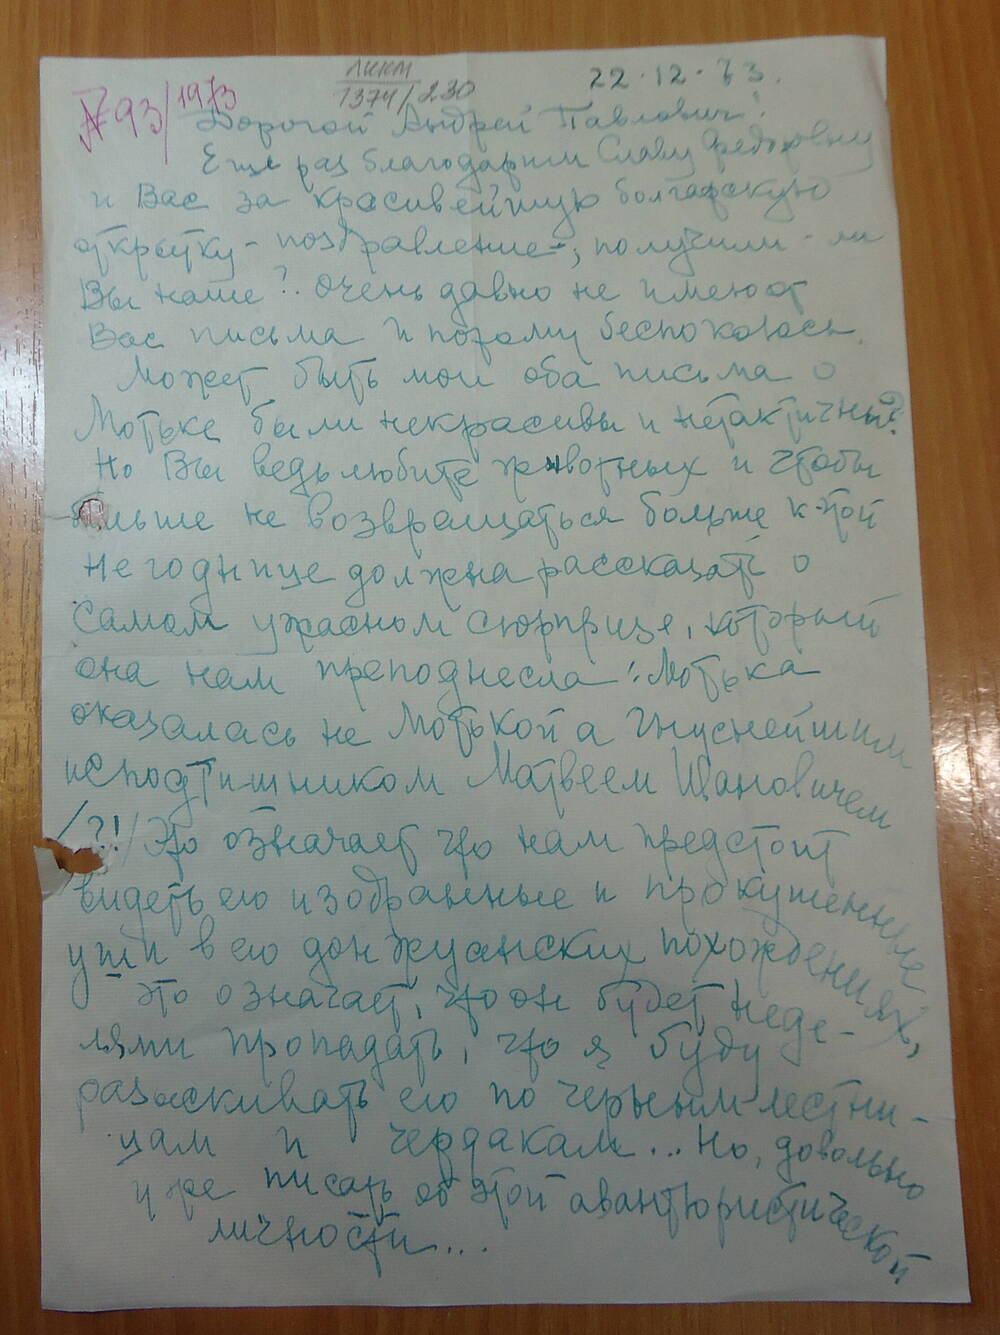 № 93/1973
ЛККМ
1374/230
22.12.73.
Дорогой Андрей Павлович!
Еще раз благодарим Славу Федоровну
и Вас за красивейшую болгарскую
открытку-поздравление-, получили-ли
Вы наше? Очень давно не имею от
Вас письма и потому беспокоюсь.
Может быть мои оба письма о
Мотьке были некрасивы и нетактичны?
Но Вы ведь любите животных и чтобы
больше не возвращаться больше к этой
негоднице должна рассказать о
самом ужасном сюрпризе, который
она нам преподнесла: Мотька
оказалась не Мотькой а гнуснейшим
исподтишником Матвеем Ивановичем
/?!/ Это означает что нам предстоит
видеть его изодранные и прокушенные
уши в его донжуанских похождениях,
это означает, что он будет неде-
лями пропадать, что я буду
разыскивать его по черным лестни-
цам и чердакам... Но, довольно
уже писать об этой авантюристической
личности...